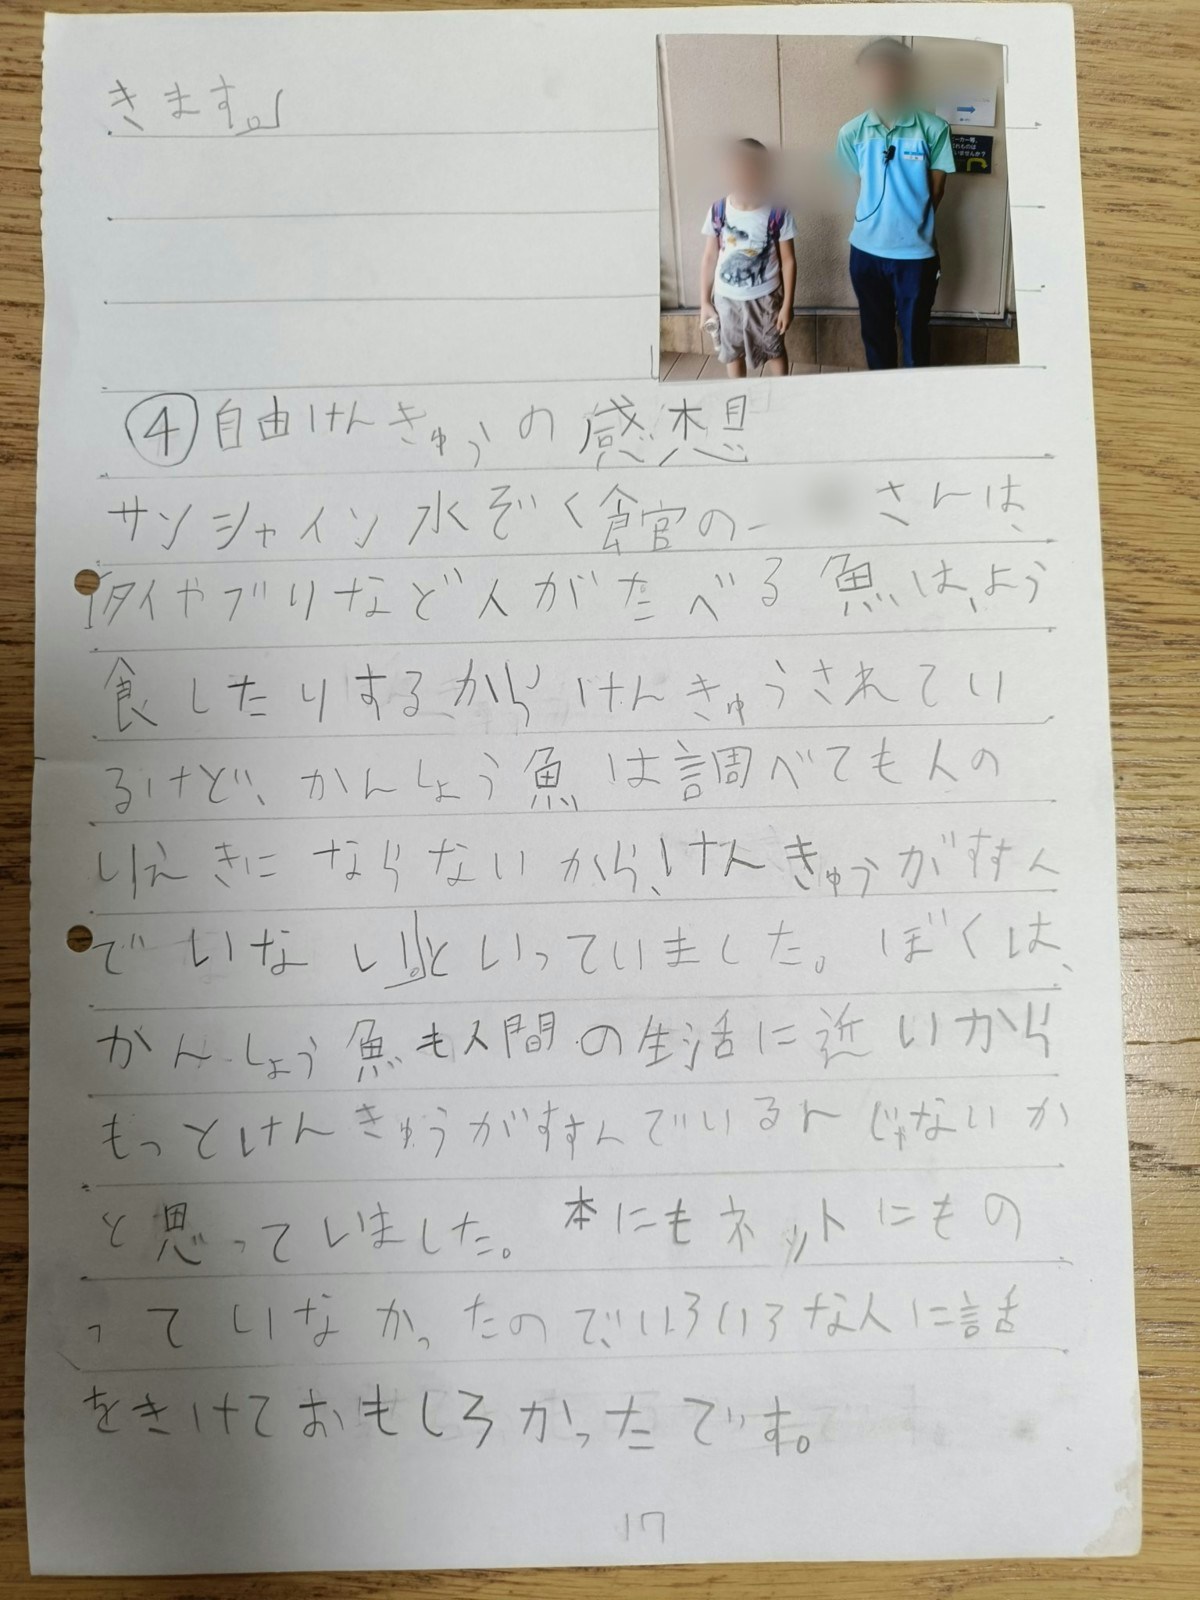 きます。」
④自由けんきゅうの感想
サンシャイン水ぞく館の さんは、
「タイやブリなど人がたべる魚は、よう
食したりするからけんきゅうされてい
るけど、かんしょう魚は調べても人の
りえきにならないから、けんきゅうがすすん
でいない。」といっていました。ぼくは、
かんしょう魚も人間の生活に近いから
もっとけんきゅうがすすんでいるんじゃないか
と思っていました。本にもネットにもの
っていなかったので、いろいろな人に話
をきけておもしろかったです。
17